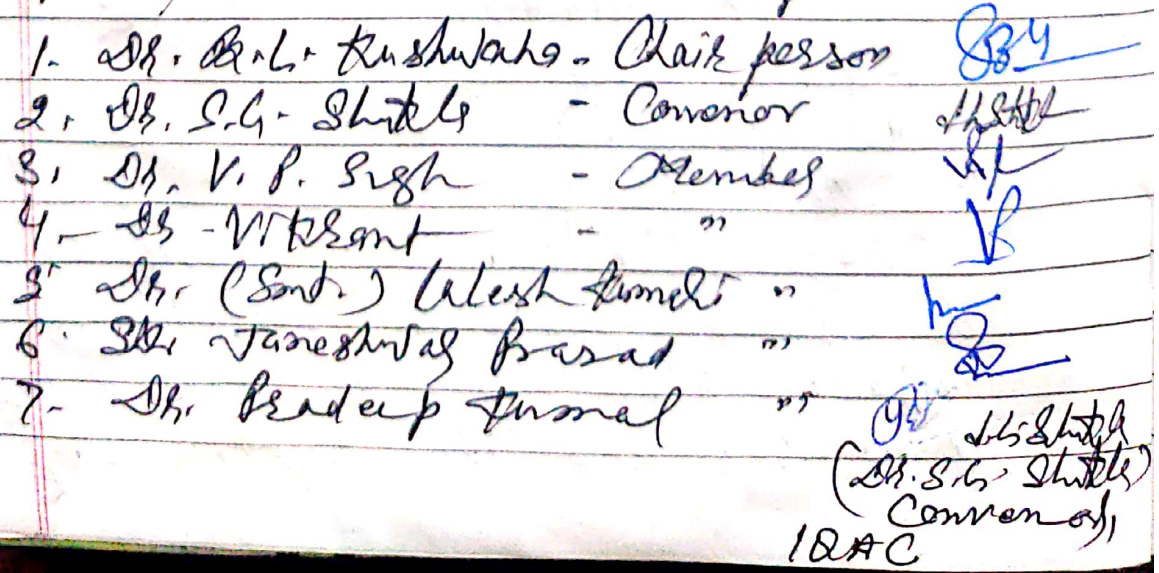 1. Dr. B.L. Kushwaha - Chair person
2. Dr. S.G. Shukla - Convenor
3. Dr. V. P. Singh - Member
4. - Dr - Vikrant - "
5 Dr. (Smt.) Kumari "
6. Sri Janeshwar Prasad "
7- Dr. Pradeep Kumar "
(Dr. S.G. Shukla)
Convenor,
IQAC